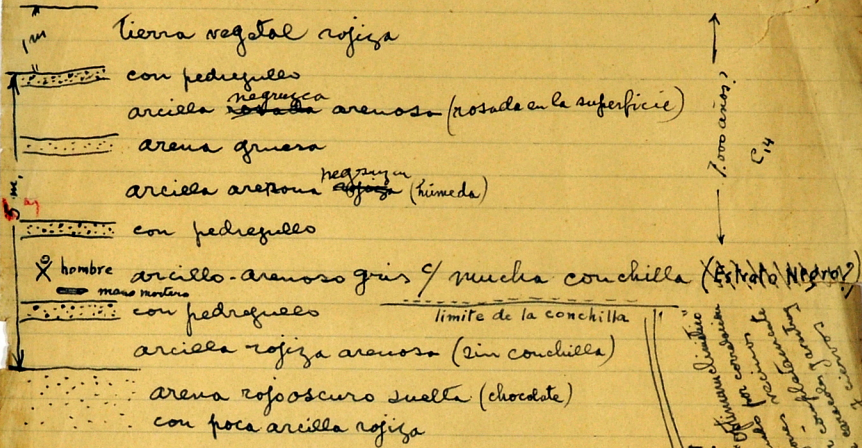 1 m
tierra vegetal rojiza
con pedregullo
negruzca
arcilla rosada arenosa (rosada en la superficie)
arena gruesa
negruzca
arcilla arenosa rojiza (húmeda)
5 m.
con pedregullo
hombre
arcillo-arenoso gris c/ mucha conchilla (Estrato Negro?)
mano mortero
con pedregullo
limite de la conchilla
arcilla rojiza arenosa (sin conchilla)
arena rojo oscuro suelta (chocolate)
con poca arcilla rojiza
7.000 años?
C14